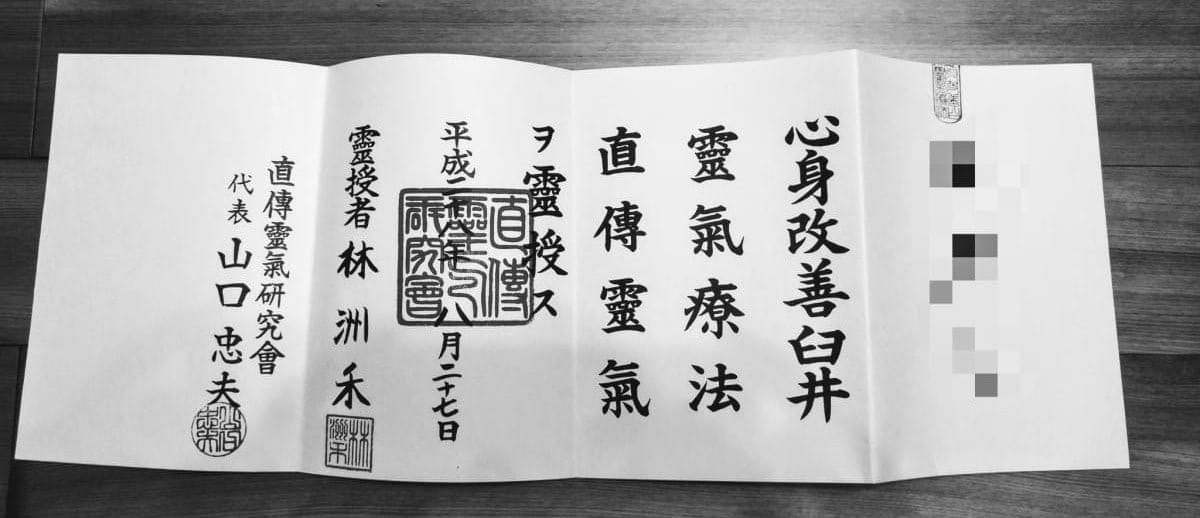 心身改善臼井
靈氣療法
直傳靈氣
ヲ靈授ス
平成二十八年 八月二十七日
靈授者 林 洲禾
直傳靈氣研究會
代表 山口 忠夫
直傳
靈氣
研究會